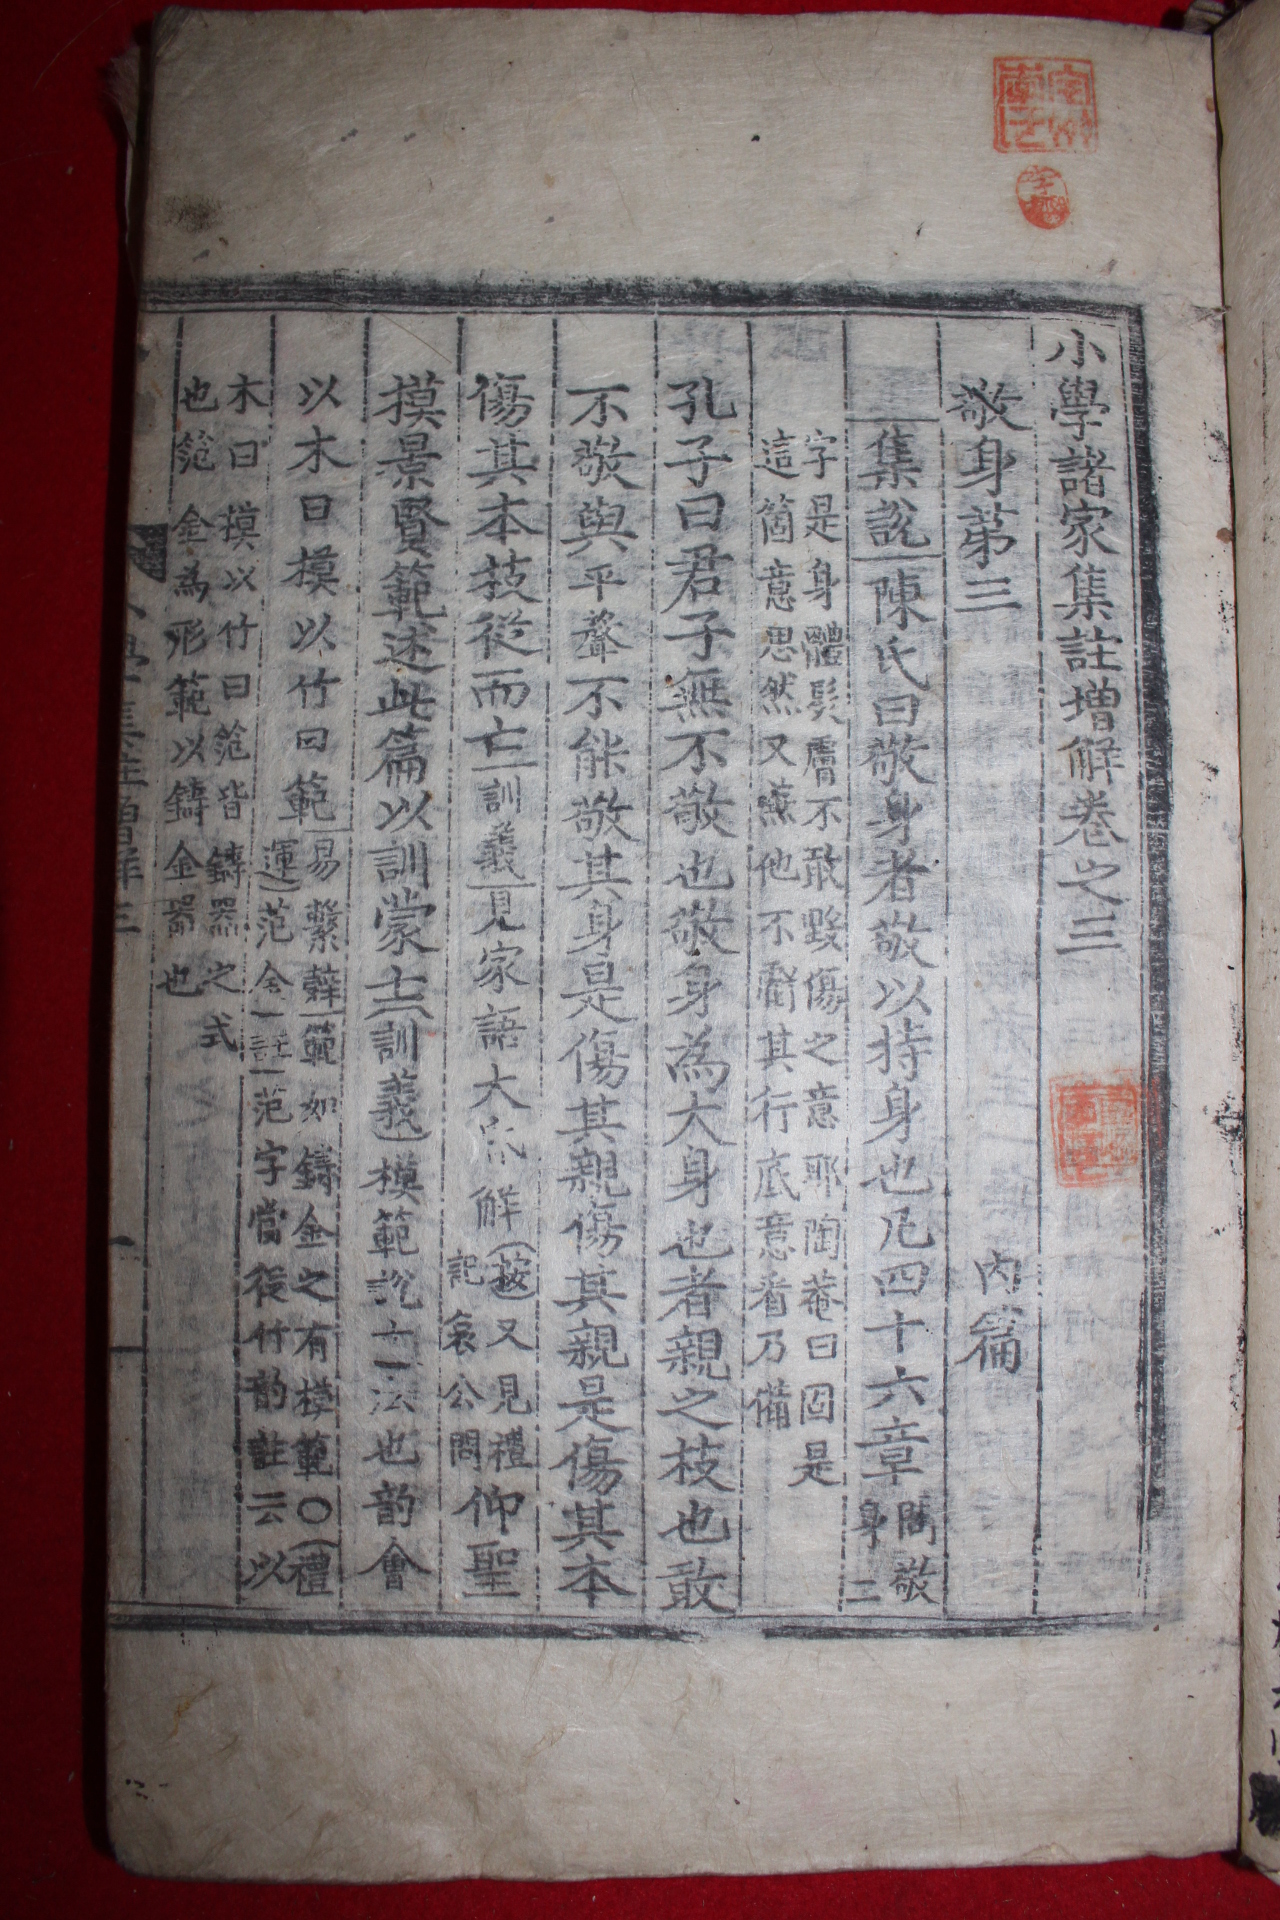 小學諸家集註增解卷之三
敬身第三 內篇
集說陳氏曰敬身者敬以持身也凡四十六章問敬身二
字是身體髮膚不敢毀傷之意耶陶菴曰固是
這箇意思然又兼他不虧其行底意看乃備
孔子曰君子無不敬也敬身為大身也者親之枝也敢
不敬與平聲不能敬其身是傷其親傷其親是傷其本
傷其本枝從而亡訓義見家語大昏解按又見禮記哀公問仰聖
摸景賢範述此篇以訓蒙士訓義模範說法也韵會
以木曰摸以竹曰範易繫辭範如鑄金之有模範○禮
運范金註范字當從竹韵註云以
木曰摸以竹曰笵皆鑄器之式
也笵金為形範以鑄金器也